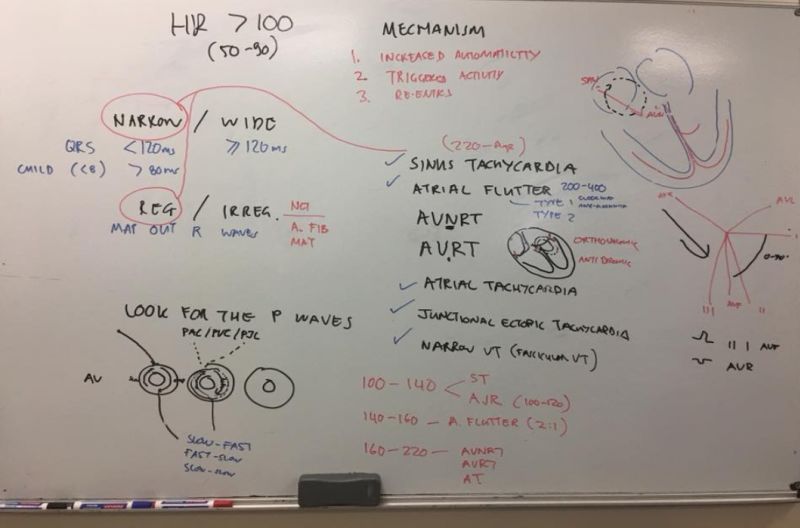 HR > 100
(50-90)
NARROW / WIDE
QRS <120ms ≥120ms
CHILD (<8) > 80ms
REG / IRREG.
A. FIB
MAT
MAP OUT R WAVES
LOOK FOR THE P WAVES
PAC/PVC/PJC
AV
SLOW-FAST
FAST-SLOW
SLOW-SLOW
MECHANISM
1. INCREASED AUTOMATICITY
2. TRIGGERED ACTIVITY
3. RE-ENTRY
(220-AGE)
SINUS TACHYCARDIA
ATRIAL FLUTTER 200-400
TYPE 1
TYPE 2
AVNRT
AVRT
ORTHODROMIC
ANTIDROMIC
ATRIAL TACHYCARDIA
JUNCTIONAL ECTOPIC TACHYCARDIA
NARROW VT (FASCICULAR VT)
100-140 ST
AJR (100-120)
140-160 - A. FLUTTER (2:1)
160-220 - AVNRT
AVRT
AT
SAN
AVN
AVR
AVL
I
0-90°
III AVF II
II I AVF
AVR